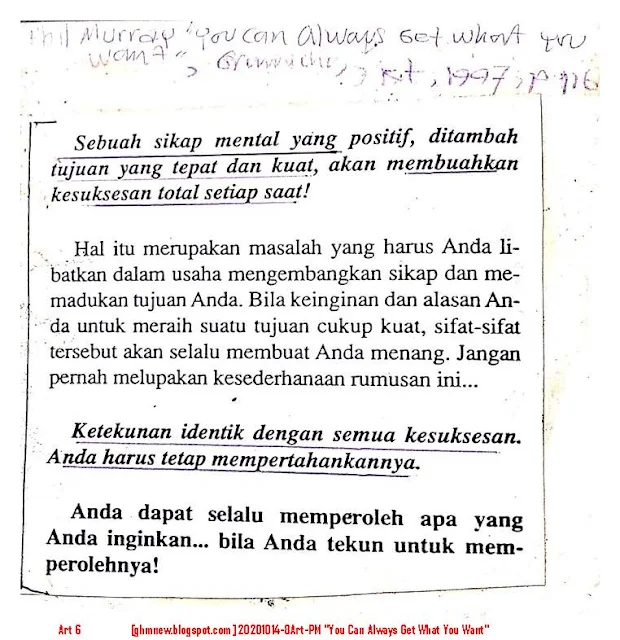 Phil Murray "You can Always Get what You
Want",
1997, p 116
Sebuah sikap mental yang positif, ditambah
tujuan yang tepat dan kuat, akan membuahkan
kesuksesan total setiap saat!
Hal itu merupakan masalah yang harus Anda li-
batkan dalam usaha mengembangkan sikap dan me-
madukan tujuan Anda. Bila keinginan dan alasan An-
da untuk meraih suatu tujuan cukup kuat, sifat-sifat
tersebut akan selalu membuat Anda menang. Jangan
pernah melupakan kesederhanaan rumusan ini...
Ketekunan identik dengan semua kesuksesan.
Anda harus tetap mempertahankannya.
Anda dapat selalu memperoleh apa yang
Anda inginkan... bila Anda tekun untuk mem-
perolehnya!
Art 6 [ghmnew.blogspot.com] 20201014-0Art-PM "You Can Always Get What You Want"